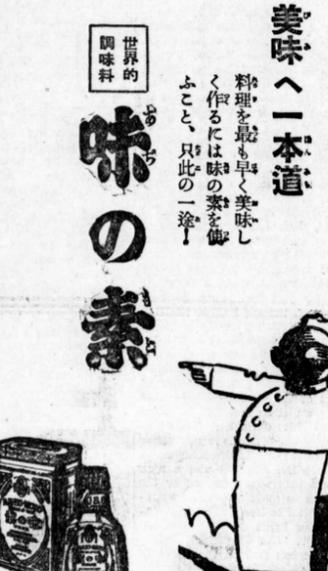 美味へ一本道
料理を最も早く美味し
く作るには味の素を使
ふこと、只此の一途！
世界的
調味料
味の素